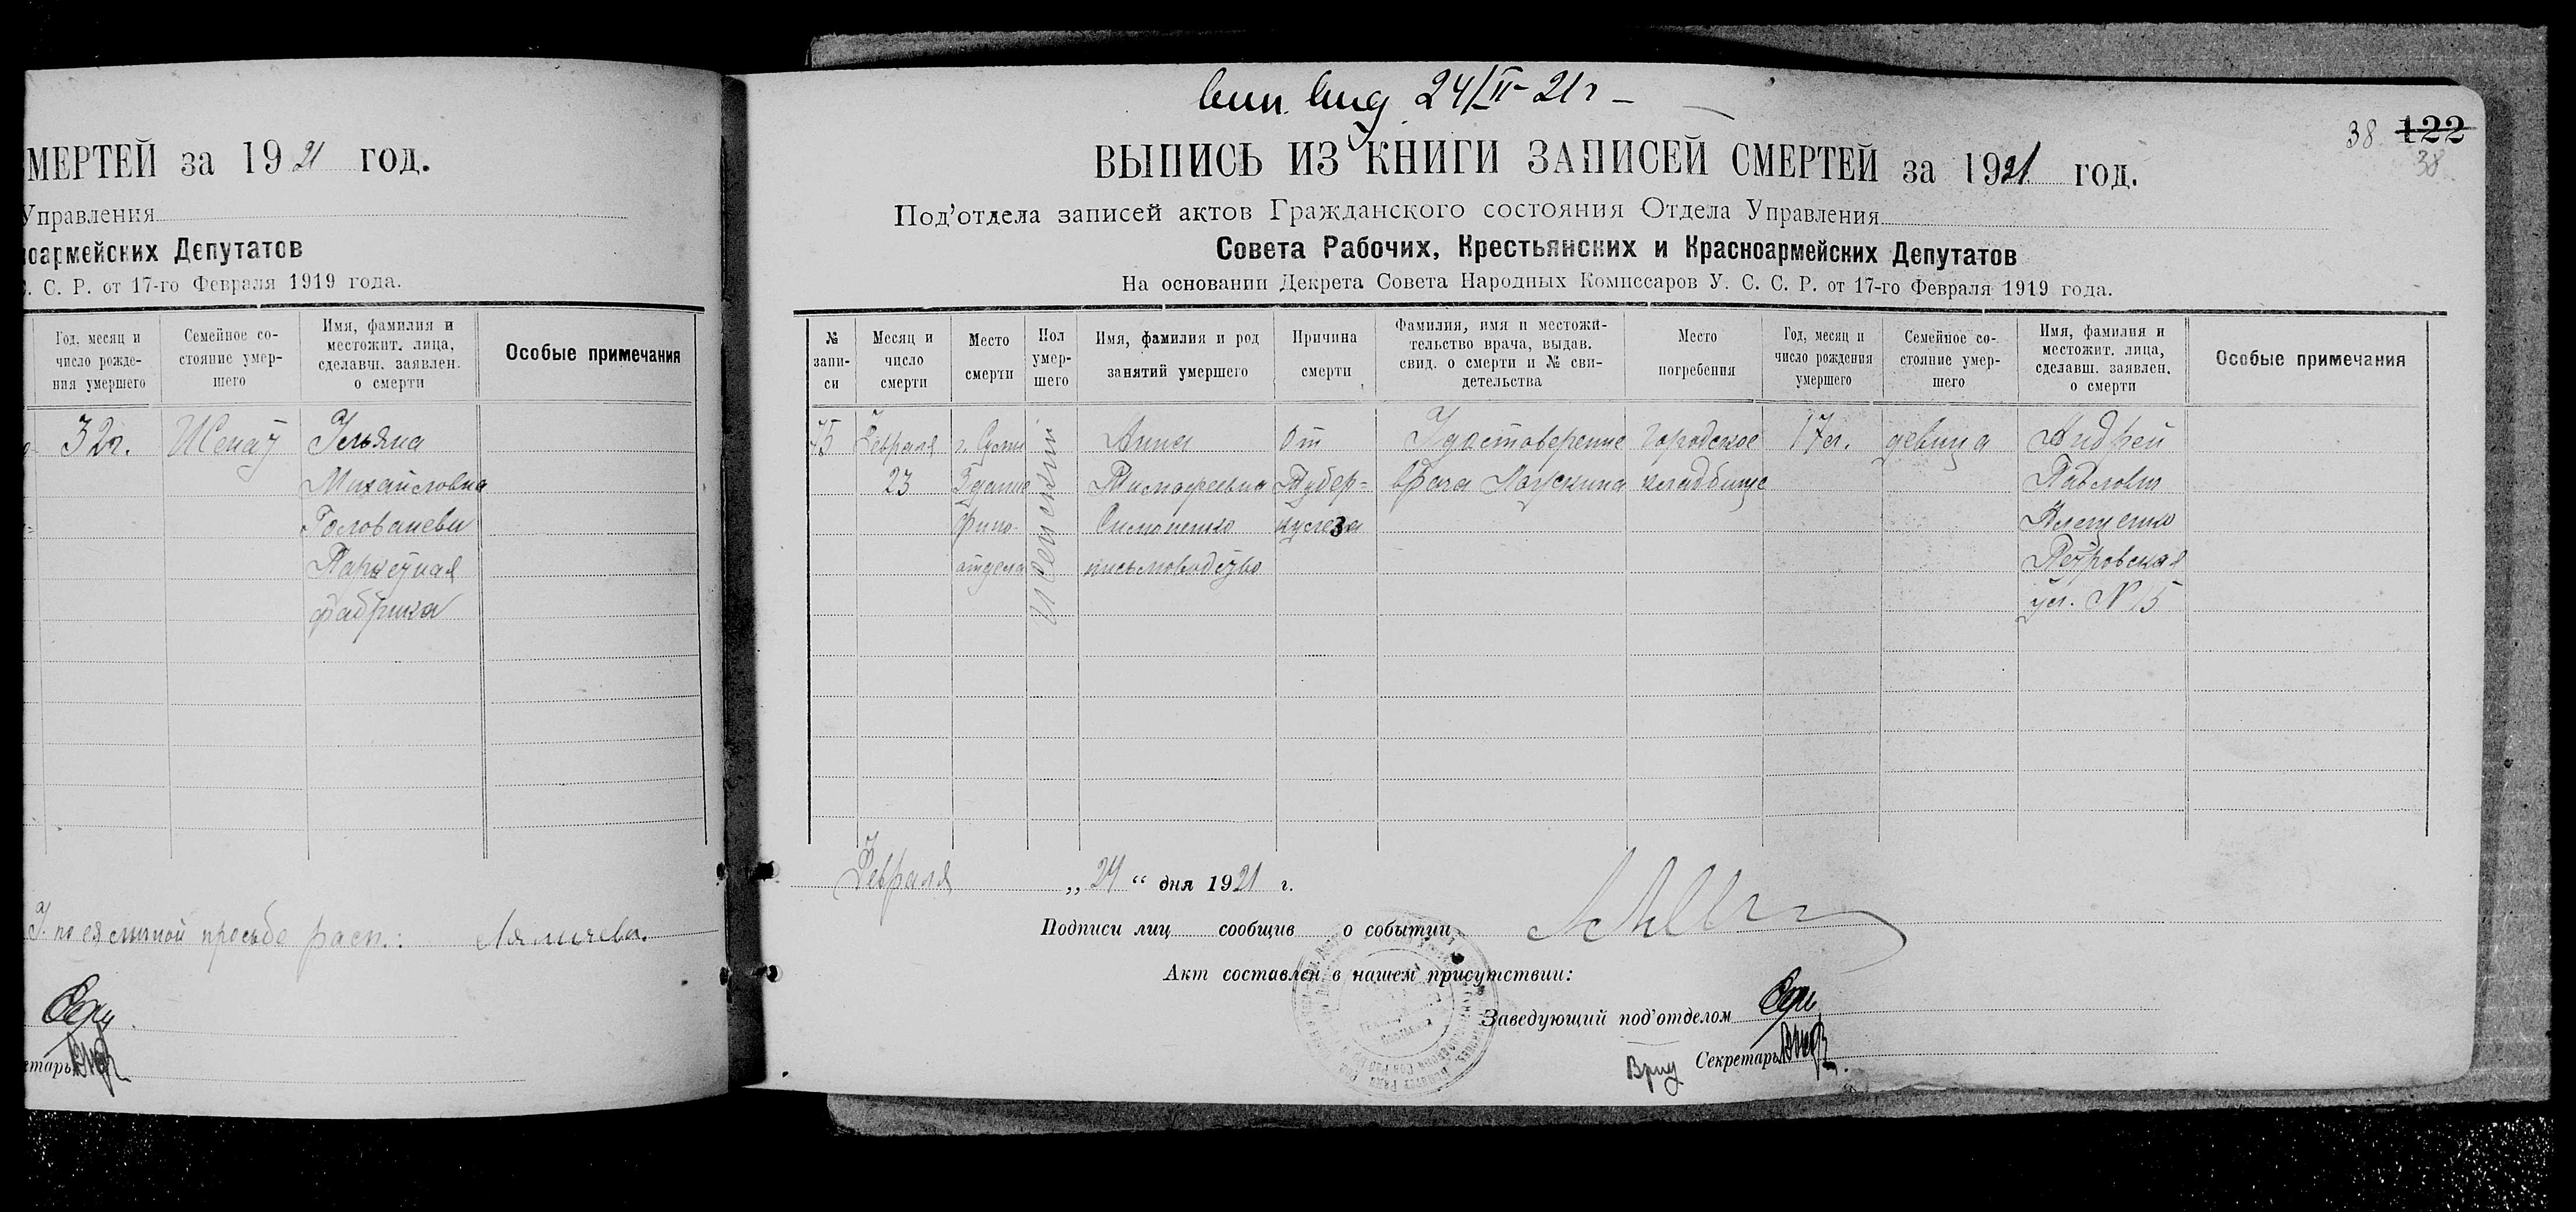 МЕРТЕЙ за 1921 год.
Управления
ноармейских Депутатов
С. С. Р. от 17-го Февраля 1919 года.
Год, месяц и число рожде- ния умершего
Семейное со- стояние умер- шего
Имя, фамилия и местожит. лица, сделавш. заявлен. о смерти
Особые примечания
32 г.
Женат
Ульяна
Михайловна
Голованева
Паркетная
фабрика
по ея личной просьбе расп.:
етарь
24/II-21 г
38 122
38
ВЫПИСЬ ИЗ КНИГИ ЗАПИСЕЙ СМЕРТЕЙ за 1921 год.
Под'отдела записей актов Гражданского состояния Отдела Управления
Совета Рабочих, Крестьянских и Красноармейских Депутатов
На основании Декрета Совета Народных Комиссаров У. С. С. Р. от 17-го Февраля 1919 года.
№ запи- си
Месяц и число смерти
Место смерти
Пол умер- шего
Имя, фамилия и род занятий умершего
Причина смерти
Фамилия, имя и местожи- тельство врача, выдав. свид. о смерти и № сви- детельства
Место погребения
Год, месяц и число рождения умершего
Семейное со- стояние умер- шего
Имя, фамилия и местожит. лица, сделавш. заявлен. о смерти
Особые примечания
75
Февраля
23
г. Сумы
Здание
фино-
отдела
Женский
Анна
Тимофеевна
Симоненко
письмоводство
От
Тубер=
кулеза
Удостоверение
врача
городское
кладбище
17 л.
девица
Андрей
Павлович
Клещенко
Петровская
ул. № 15
Февраля „24“ дня 1921 г.
Подписи лиц сообщив о событии
Акт составлен в нашем присутствии:
Заведующий под'отделом
Врид Секретарь